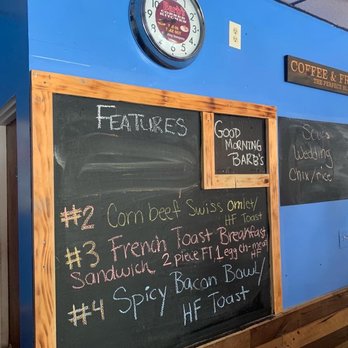 FEATURES
GOOD
MORNING
BARB'S
#2 Corn beef Swiss omlet/
HF Toast
#3 French Toast Breakfast
Sandwich, 2 piece FT, 1 egg ch-meat
HF
#4 Spicy Bacon Bowl/
HF Toast
COFFEE & FR
THE PERFECT B
Soups
Wedding
Chix/rice